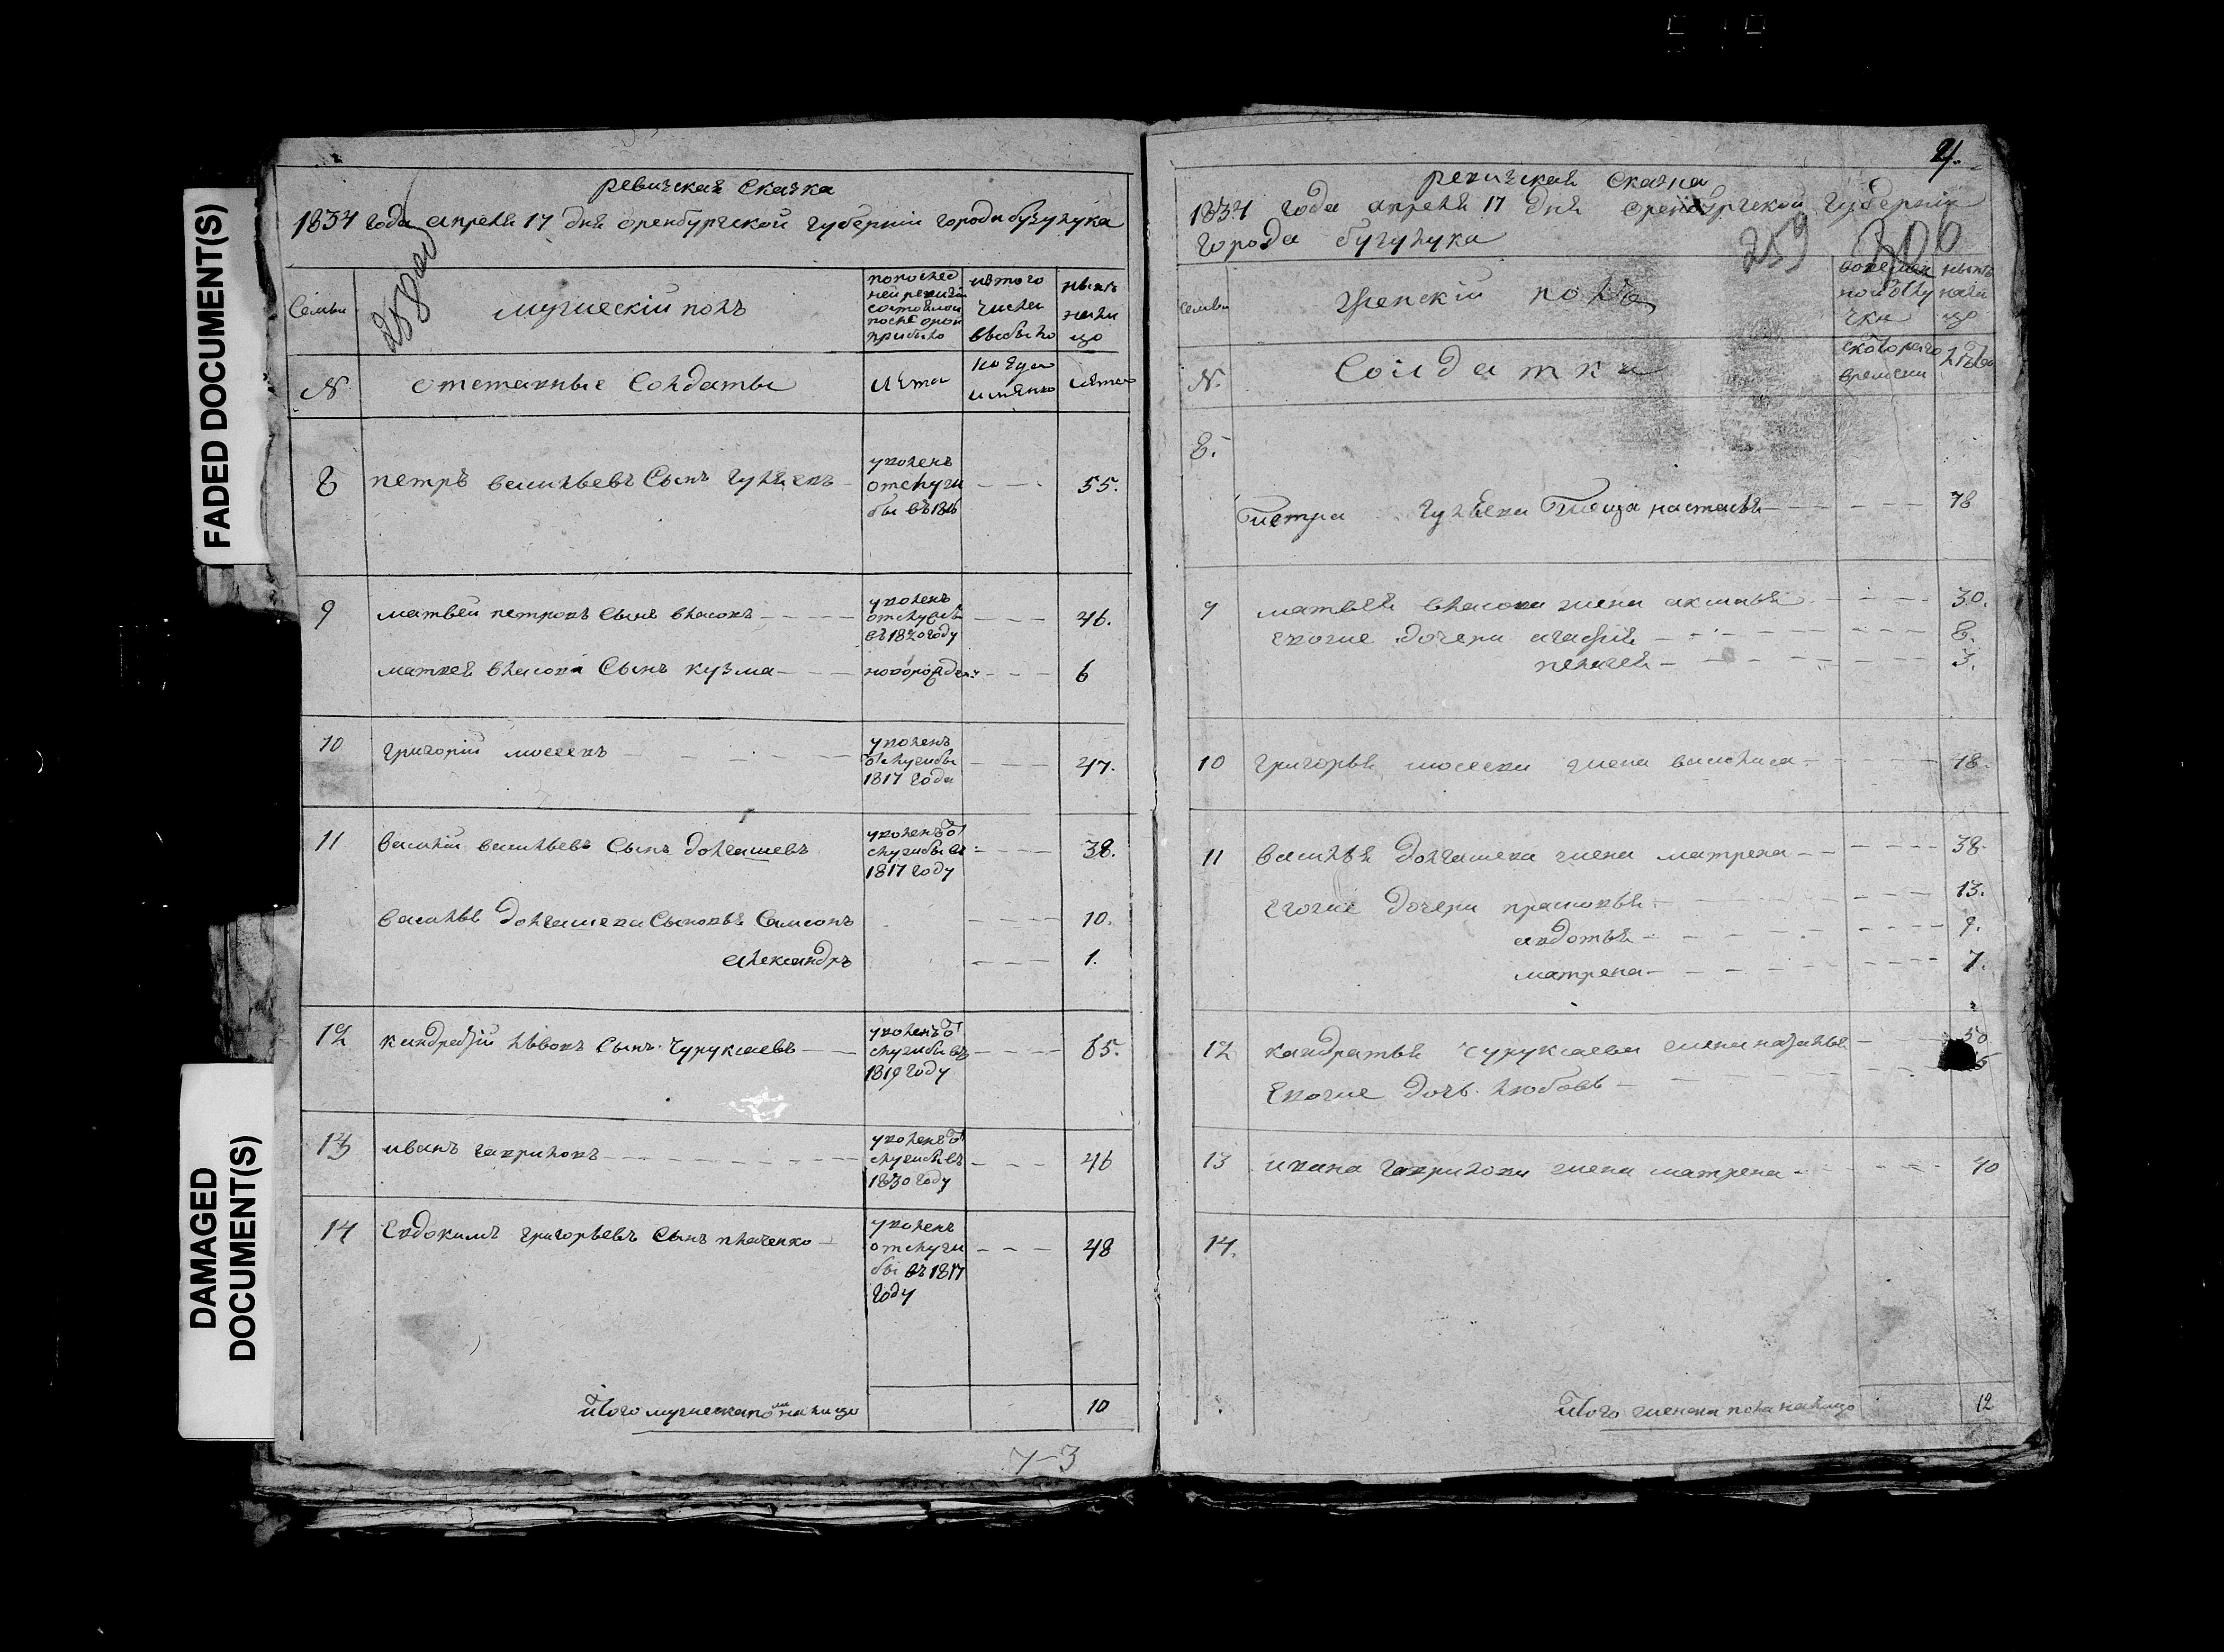 FADED DOCUMENT(S)
DAMAGED
DOCUMENT(S)
ревизская Сказка
1834 года апреля 17 дня оренбургской губерніи города бузулука
Семьи
мужескій полъ
по послед
ней ревизіи
состояло и
после оной
прибыло
изтого
числа
выбыло
нынѣ
нали
цо
№
отставные Солдаты
Лѣта
когда
имянно
Лѣта
8
петръ васильевъ Сынъ гуляевъ
уволенъ
отслужи
бы въ 1816
55.
9
матвей петровъ Сынъ власовъ
уволенъ
отслужбы
въ 1820 году
46.
матвея власова Сынъ кузма
новорожден:
6
10
григорій мосеевъ
уволенъ
отслужбы
1817 года
47.
11
василій васильевъ Сынъ долгашевъ
уволенъ от
службы въ
1817 году
38.
василья долгашева Сыновья Самсонъ
10.
александръ
1.
12
кандратій львовъ Сынъ чуруксаевъ
уволенъ от
службы въ
1819 году
65.
13
иванъ гавриловъ
уволенъ от
службы въ
1830 году
46
14
Евдокимъ григорьевъ Сынъ плаченко
уволенъ
отслужи
бы въ 1817
году
48
итого мужеска пола налицо
10
7-3
ревизская Сказка
1834 года апреля 17 дня оренбургской губерніи
города бузулука
259
300
семьи
женскій полъ
вовремян
ной отлу
чки
нынѣ
нали
цо
№.
Солдатки
скоторого
времени
лѣта
8.
петра гуляева теща настасья
78
9
матвея власова жена аксинья
30.
Евогже дочери агафія
8.
пелагея
3.
10
григорья мосеева жена василиса
18.
11
василья долгашева жена матрена
38.
Евогже дочери прасковья
13.
авдотья
9.
матрена
7.
12
кандратья чуруксаева жена наталья
50
Евогже дочь любовь
13
ивана гаврилова жена матрена
40
14.
итого женска пола налицо
12